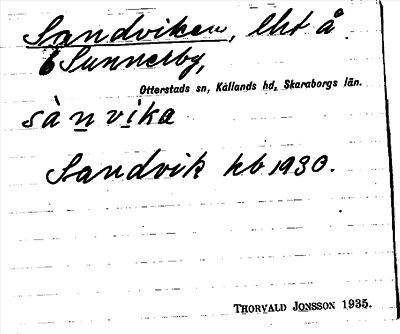 Sandviken, lht å
6 Sunnerby,
Otterstads sn, Kållands hd, Skaraborgs län.
sànvika
Sandvik kb 1930.
THORVALD JONSSON 1935.